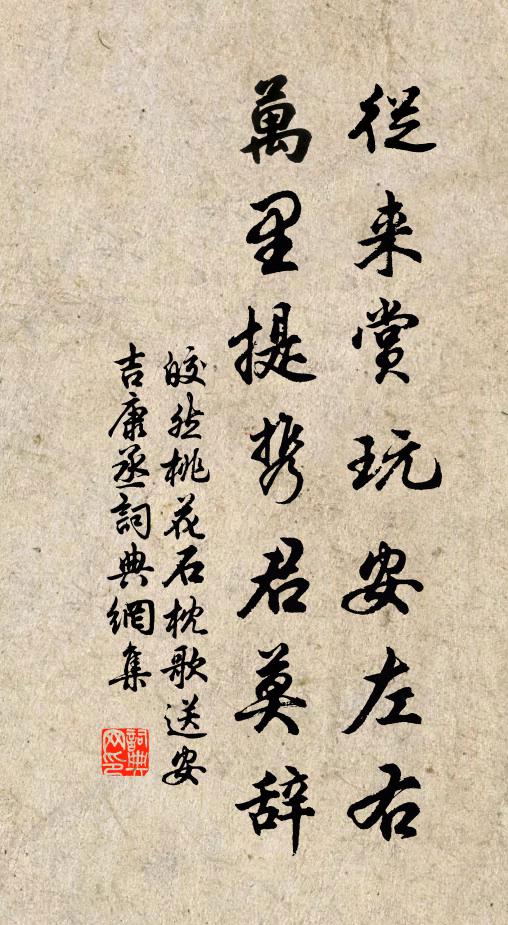 從来赏玩安左右
萬里提携君莫辞
皎然桃花石枕歌送安
吉康丞詞典網集
詞典网印